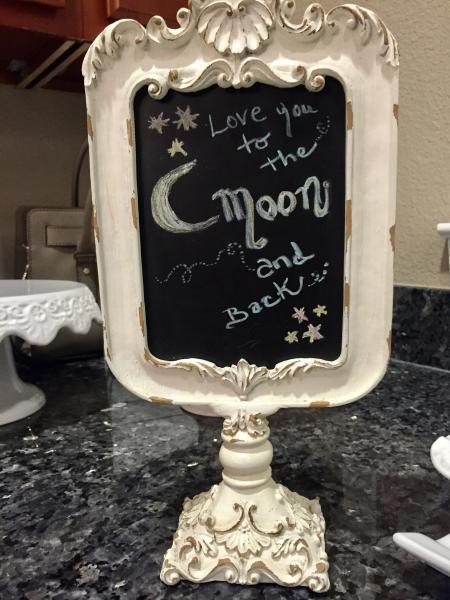 Love you
to
the
Moon
and
Back